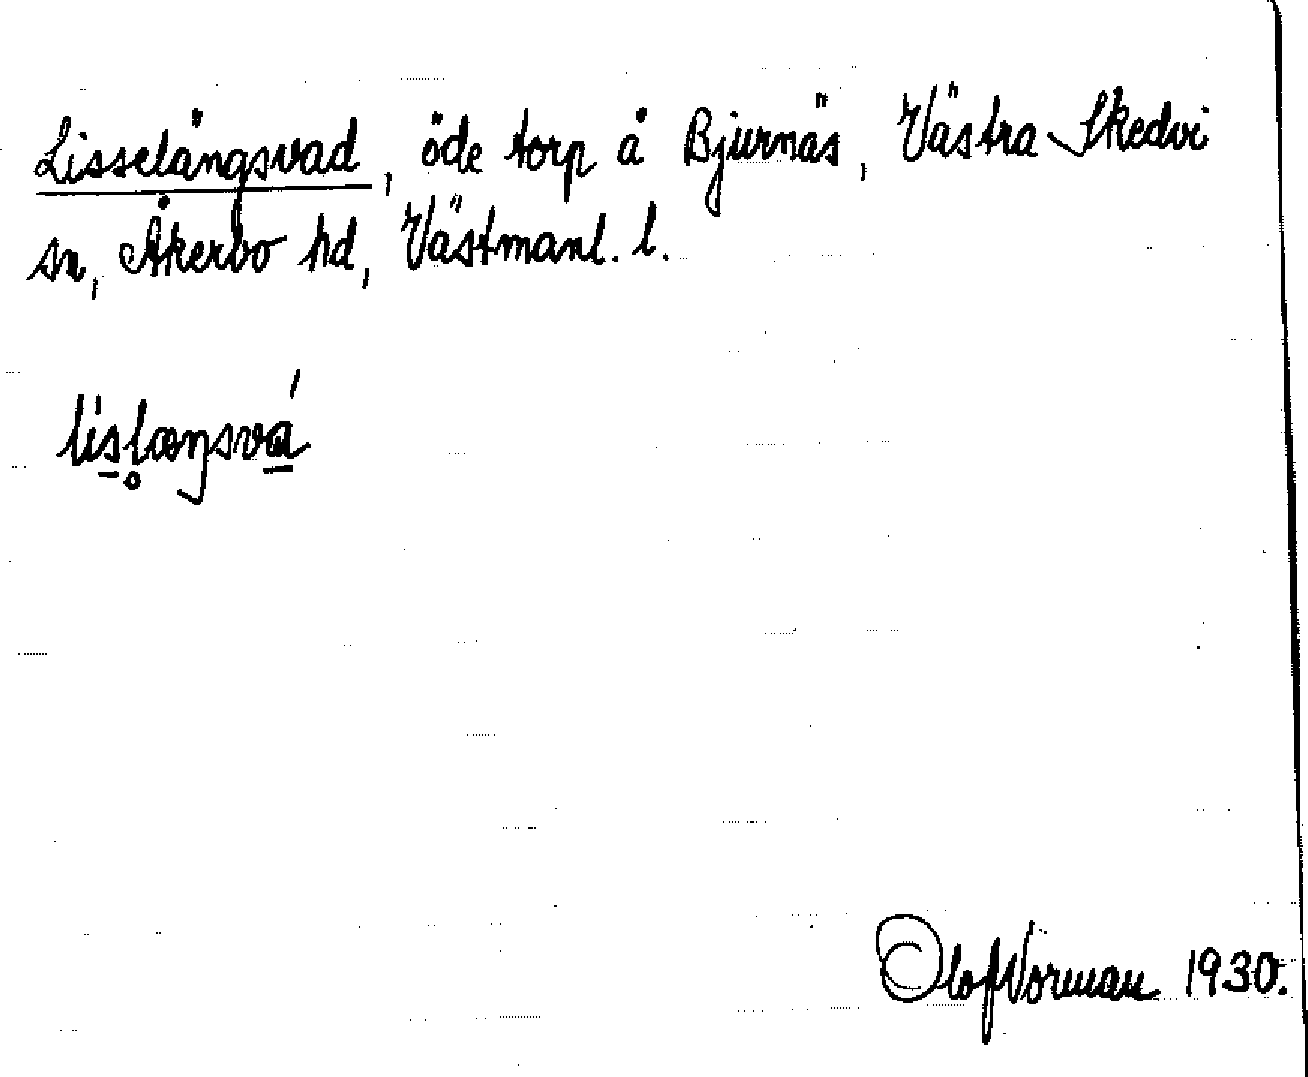 Lisselängsvad, öde torp å Bjurnäs, Västra Skedvi
sn, Åkerbo hd, Västmanl. l.
lislæŋsvá
Olof Norman 1930.